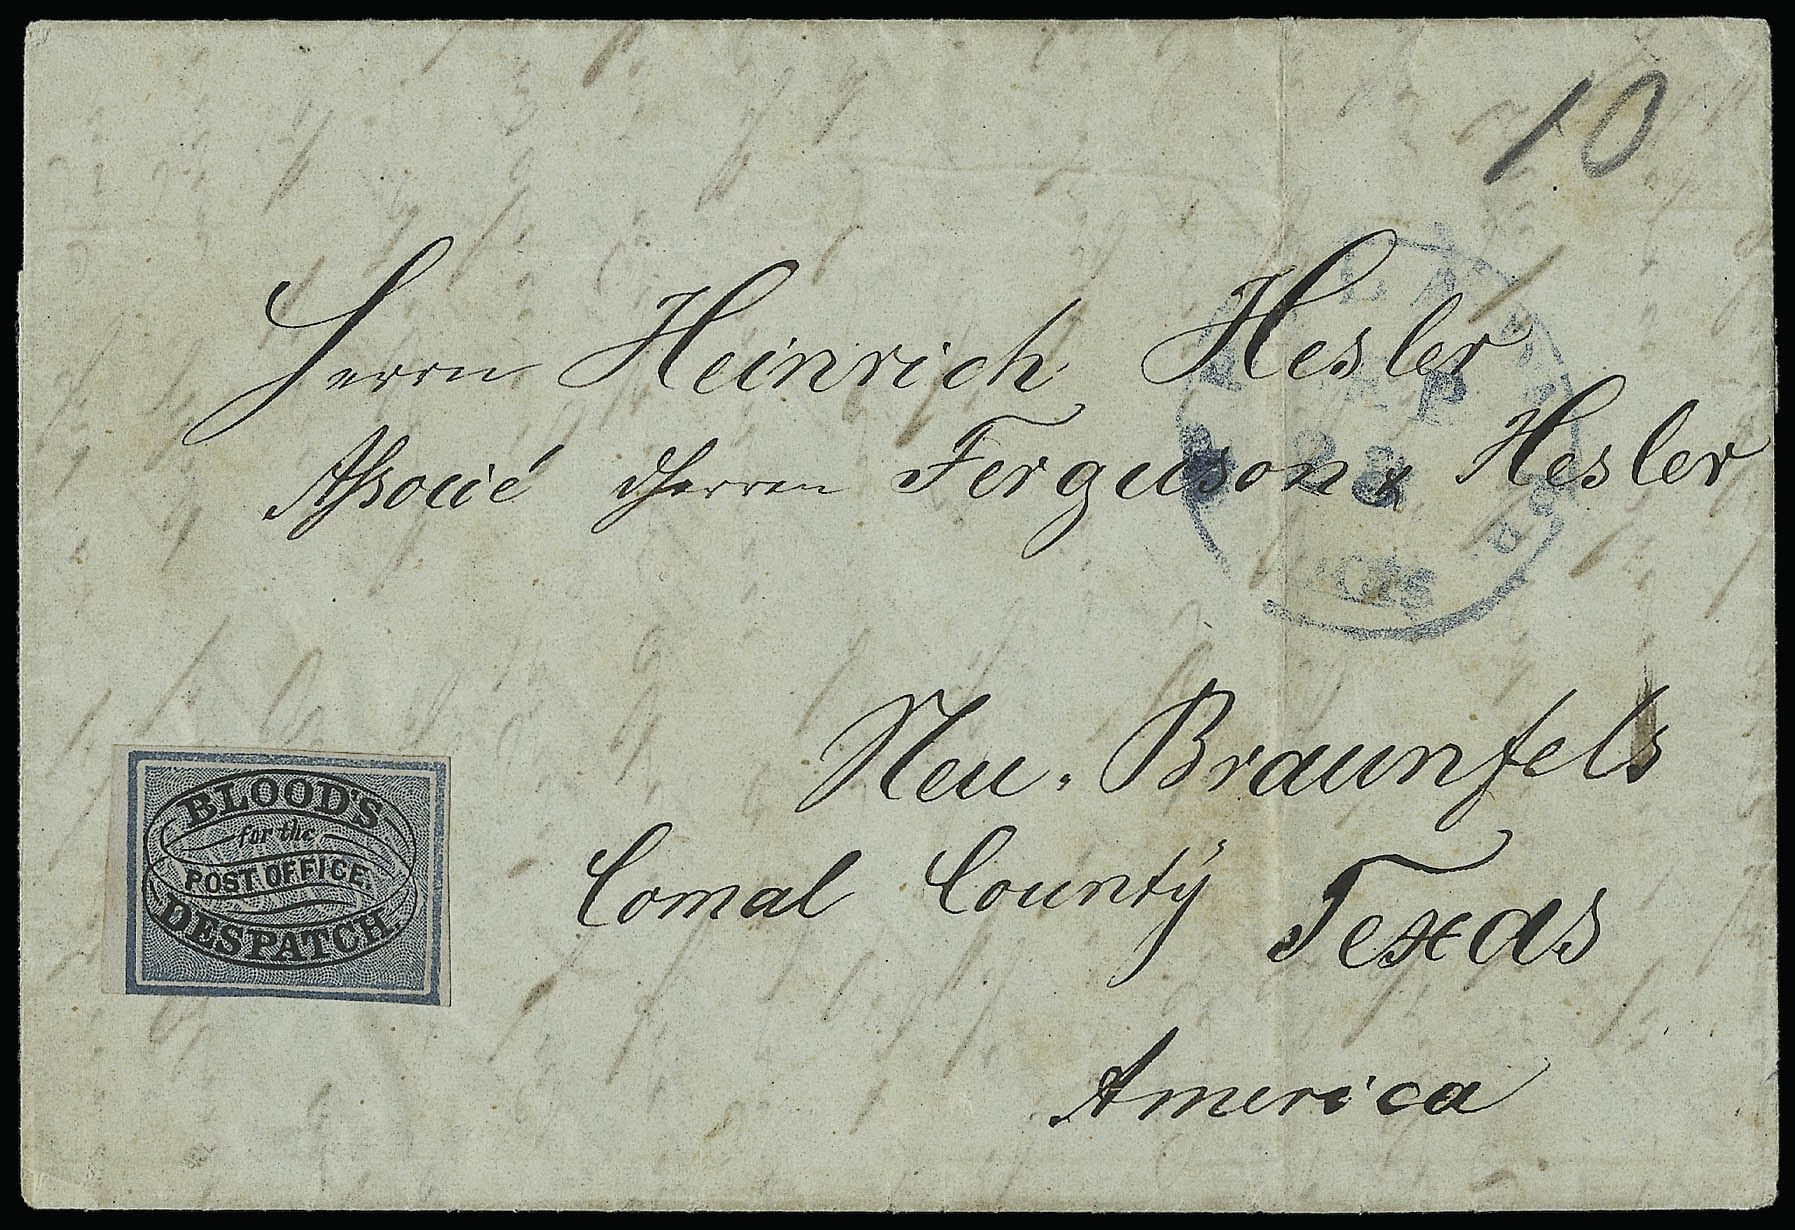 10
Herrn Heinrich Hesler
Associé dHerren Ferguson & Hesler
Neu-Braunfels
Comal County Texas
America
BLOOD'S
for the
POST OFFICE.
DESPATCH.
28
cts